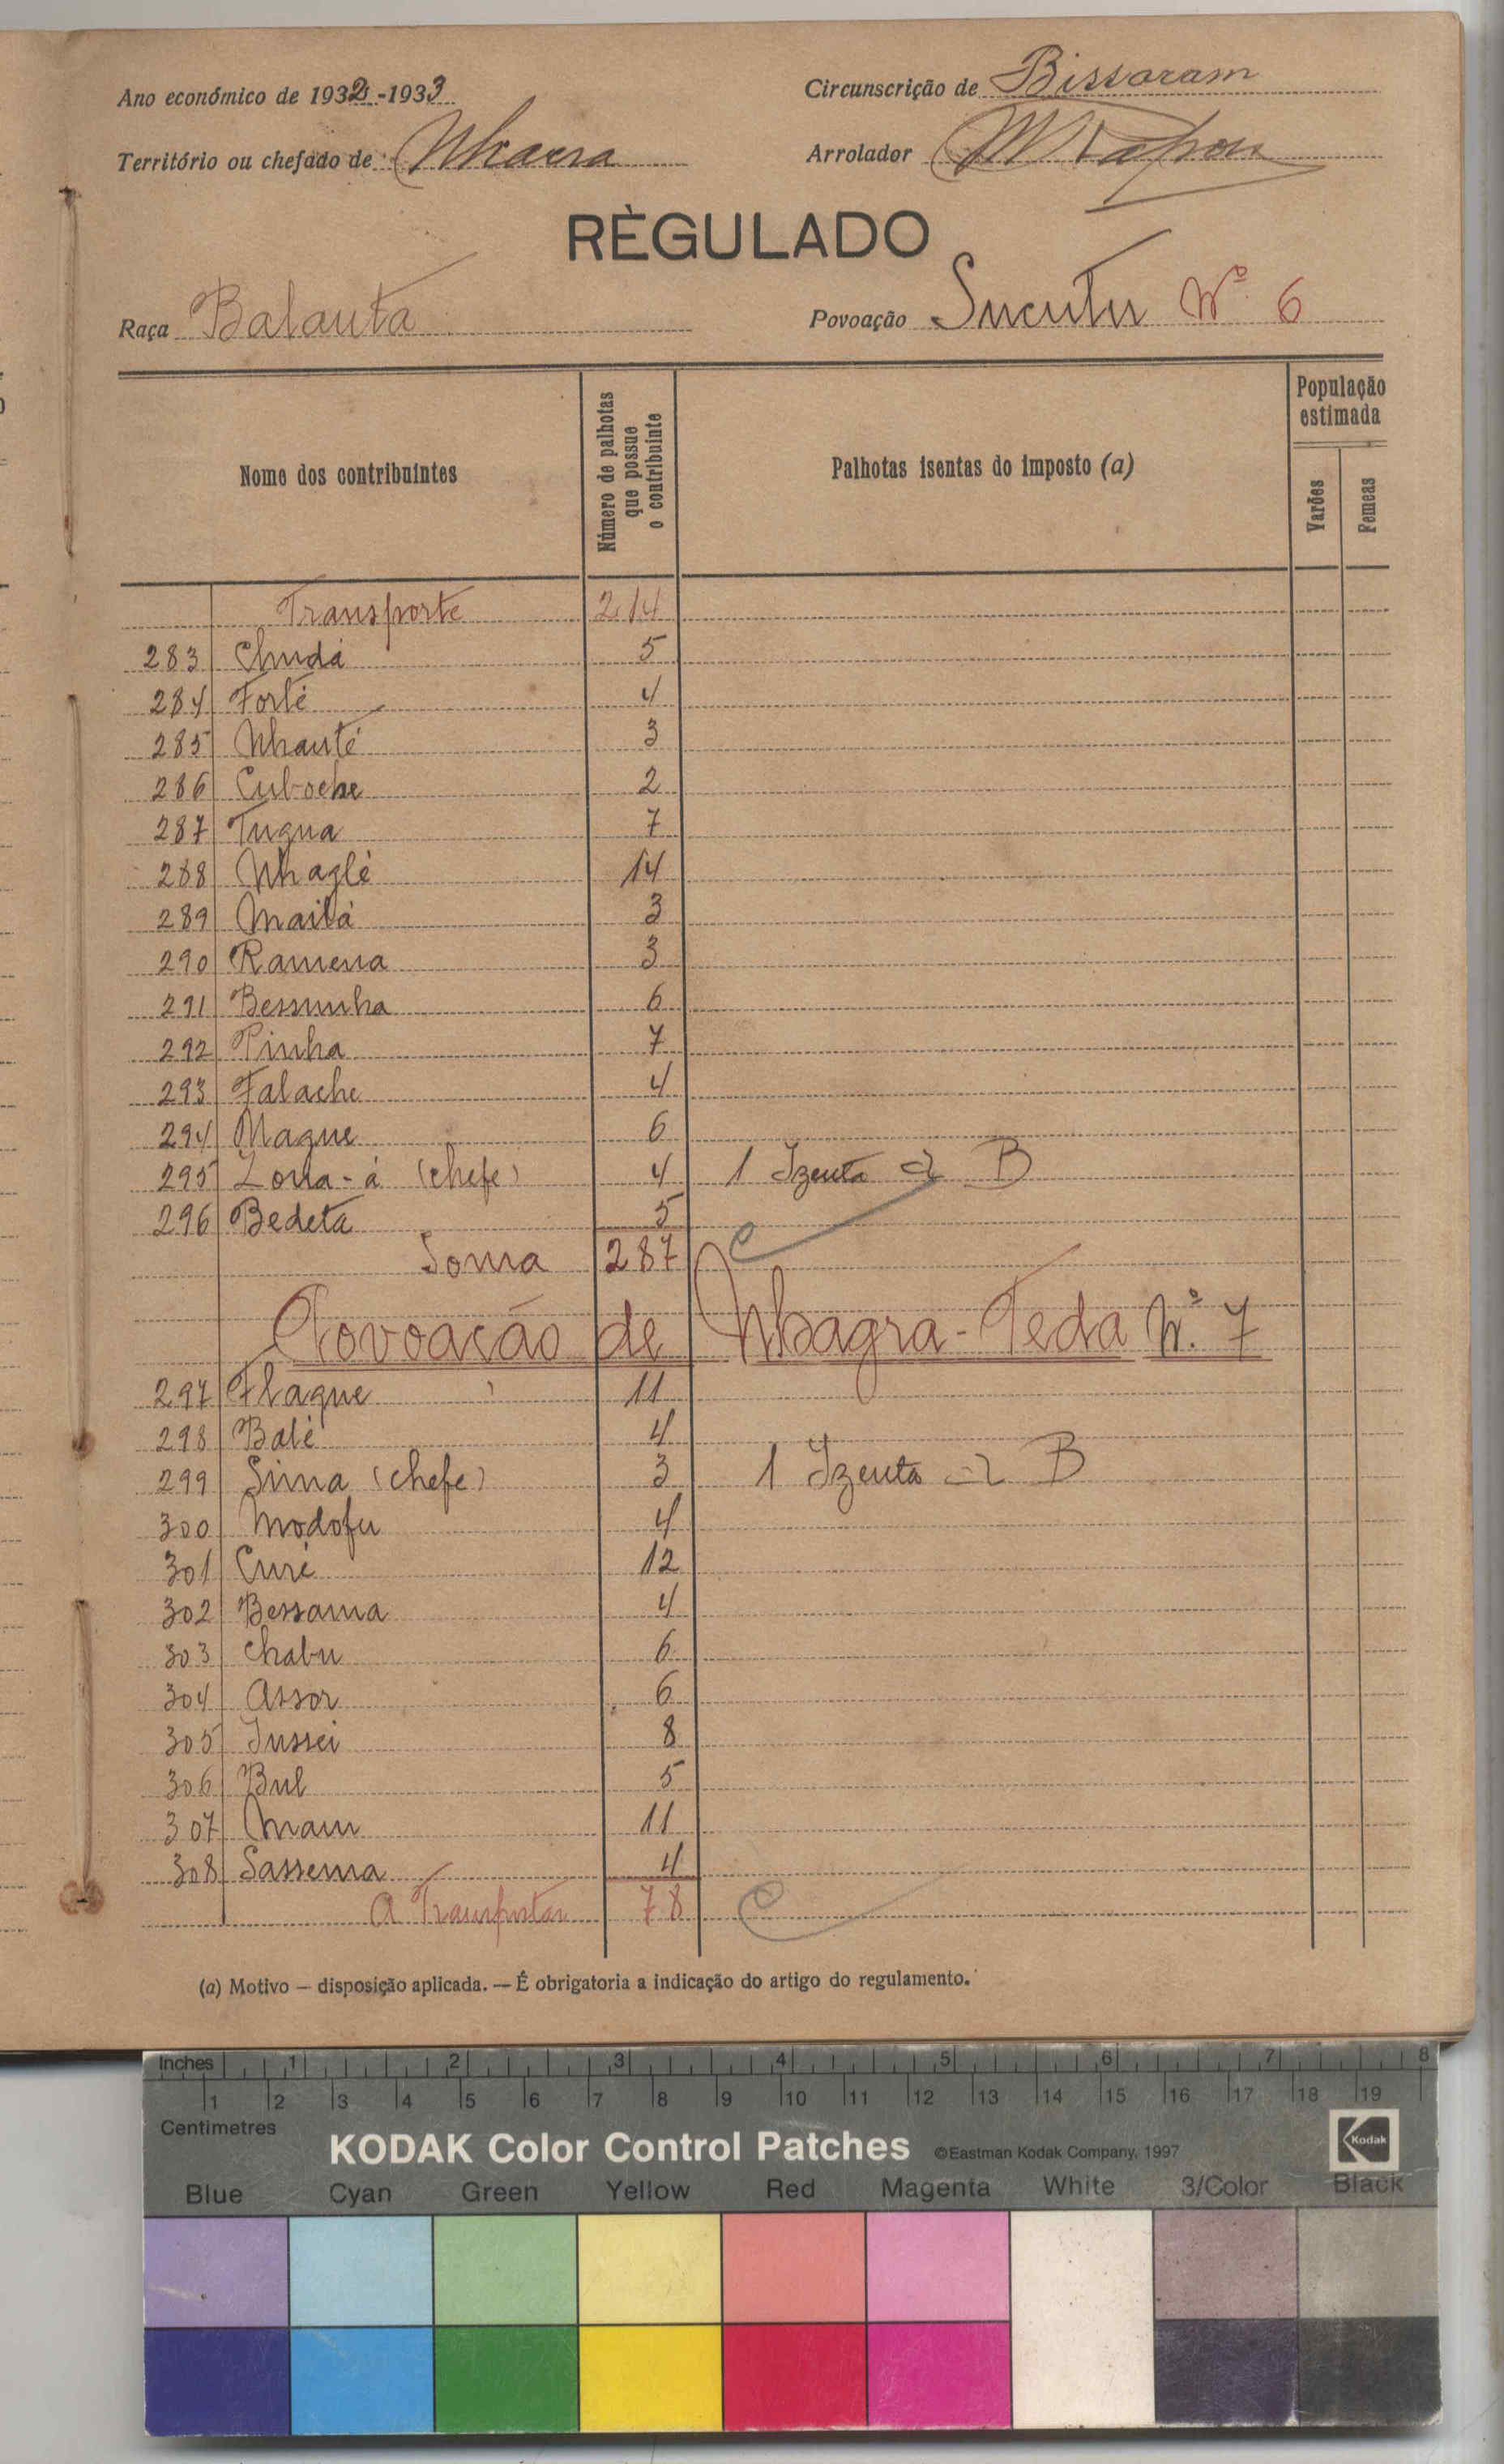 Ano económico de 1932-1933 Circunscrição de Bissoram
Território ou chefado de Nhacra Arrolador
RÈGULADO
Raça Balanta Povoação Sucutu Nº 6
Nome dos contribuintes Número de palhotas que possue o contribuinte Palhotas isentas do imposto (a) População estimada Varões Femeas
Transporte 214
283 Chudá 5
284 Forté 4
285 Nhanté 3
286 Cuboche 2
287 Tugua 7
288 Nhaglé 14
289 Mailá 3
290 Ramena 3
291 Bessunha 6
292 Pinha 7
293 Falache 4
294 Naque 6
295 Lona-á (chefe) 4 1 Izenta a) B
296 Bedeta 5
Soma 287
Povoação de Nhagra-Teda Nº 7
297 Flaque 11
298 Balé 4
299 Sima (chefe) 3 1 Izenta B
300 Modofu 4
301 Curé 12
302 Bessama 4
303 Chabu 6
304 Assor 6
305 Jussei 8
306 Bul 5
307 Mam 11
308 Sassema 4
A Transportar 78
(a) Motivo — disposição aplicada. — É obrigatoria a indicação do artigo do regulamento.
Inches 1 2 3 4 5 6 7 8
1 2 3 4 5 6 7 8 9 10 11 12 13 14 15 16 17 18 19
Centimetres
KODAK Color Control Patches ©Eastman Kodak Company, 1997 Kodak
Blue Cyan Green Yellow Red Magenta White 3/Color Black